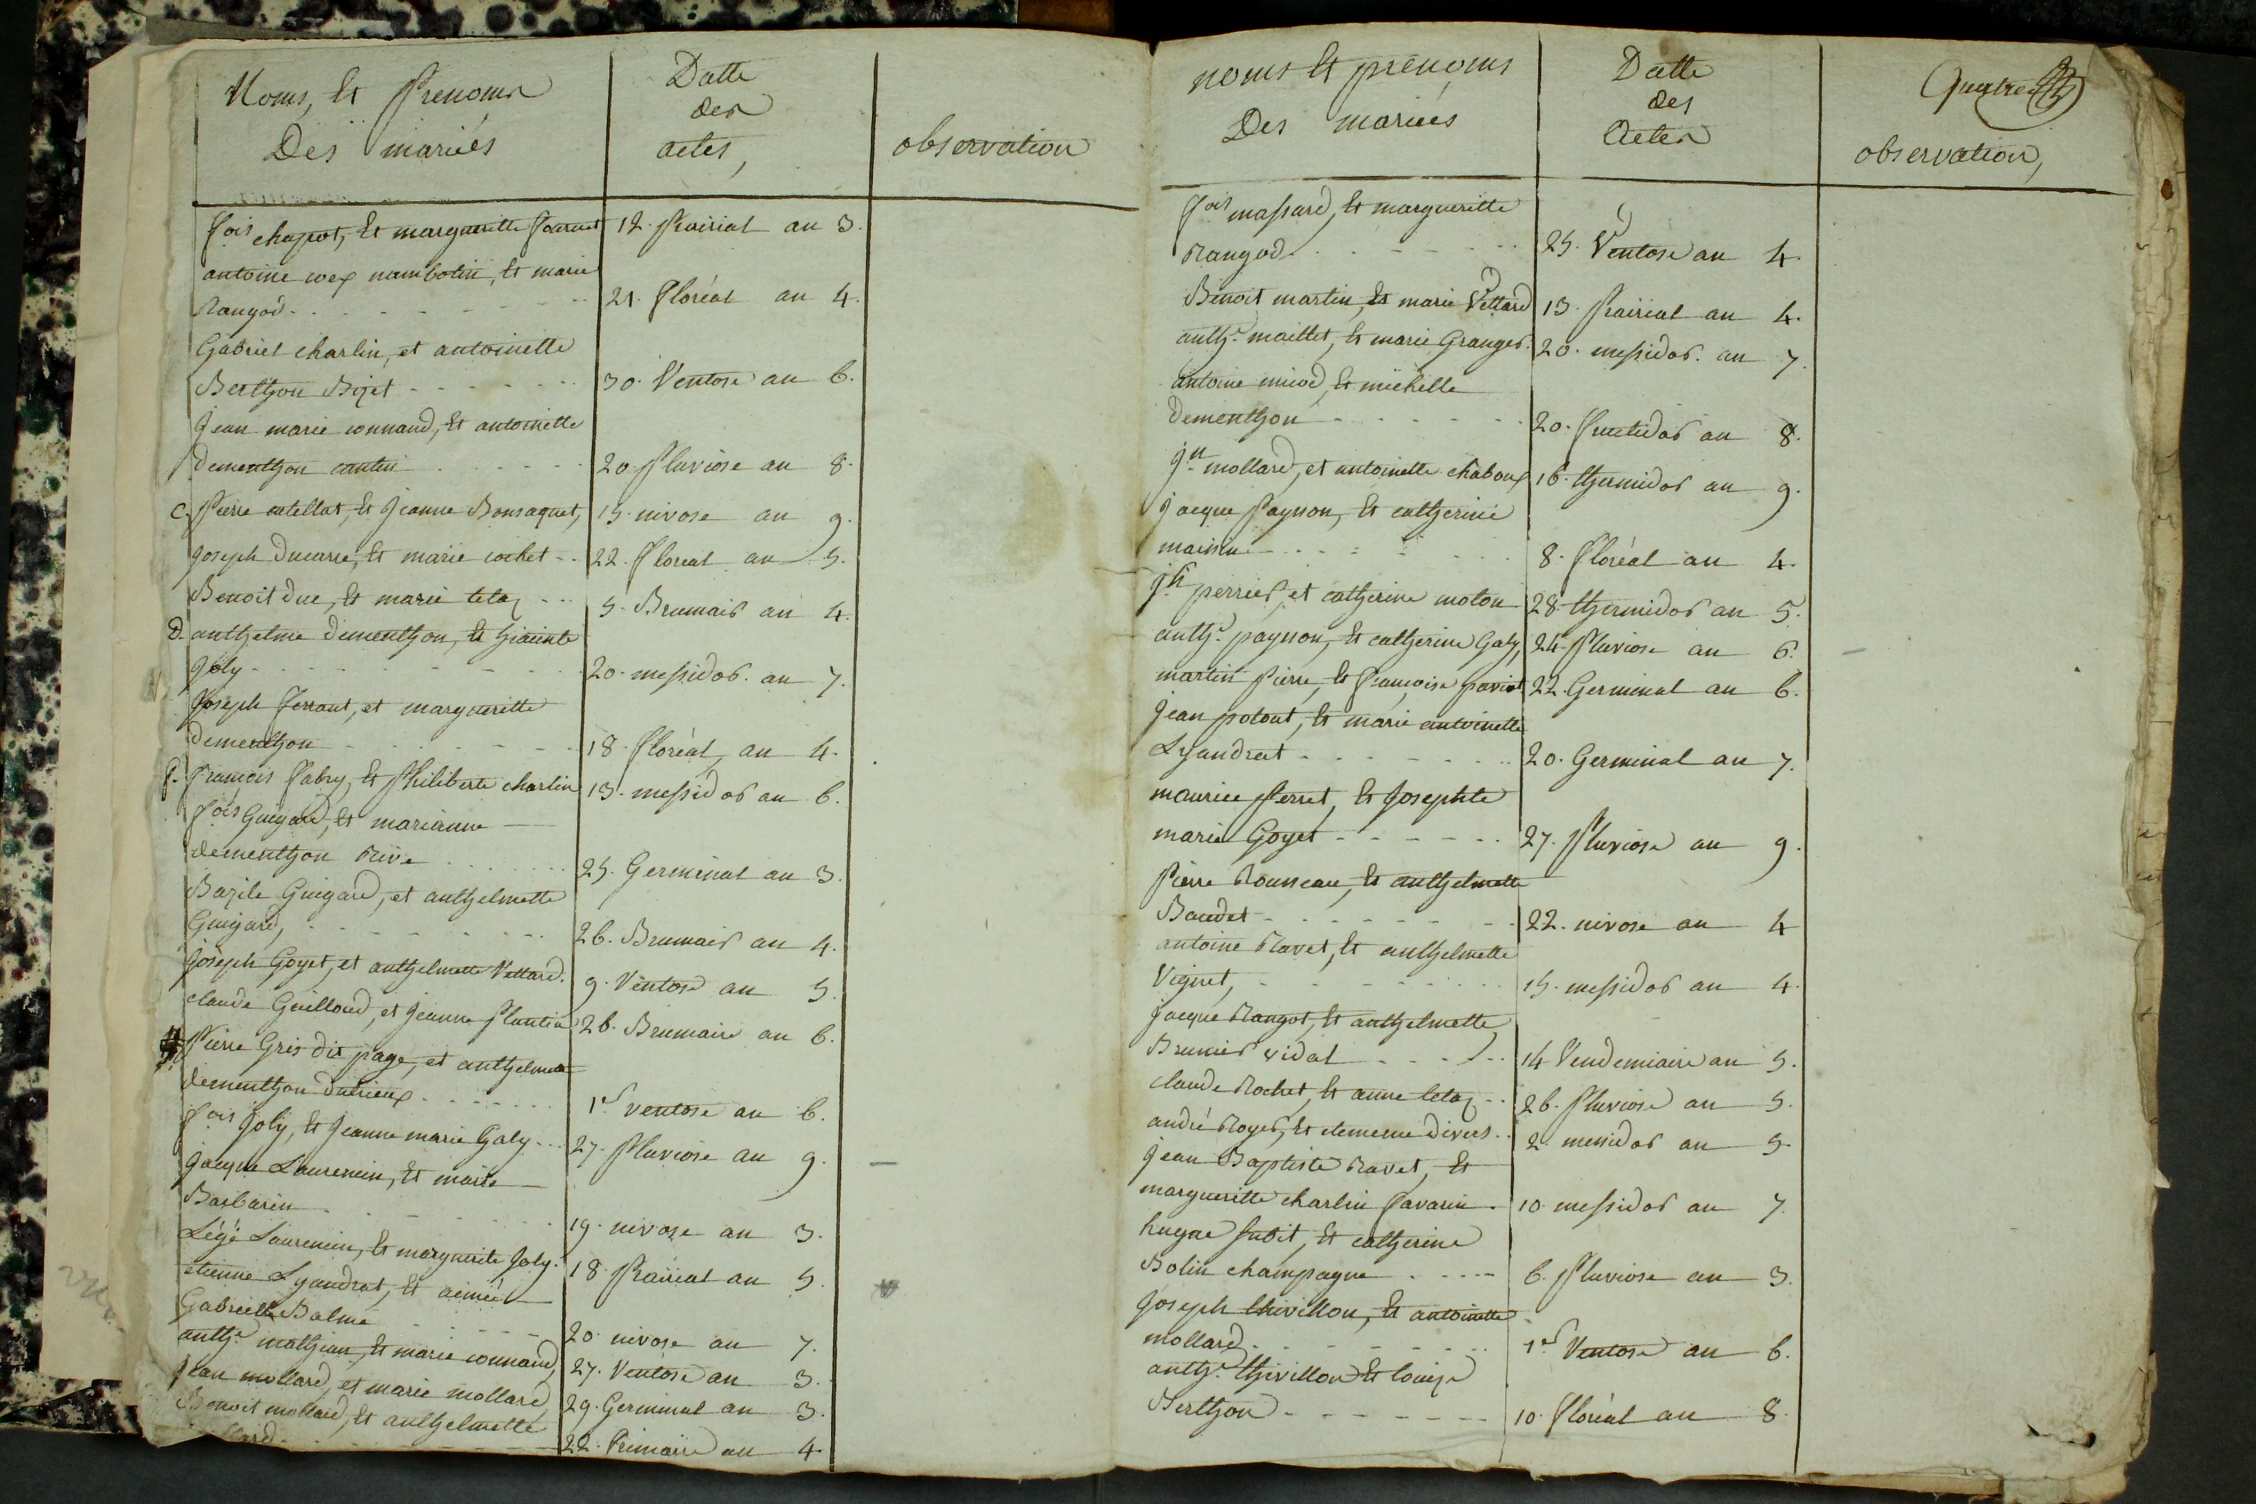 Noms, Et Prenoms
Des mariés
Datte
des
actes,
observation
f.ois chapot, Et margueritte fournet 12. Prairial an 3.
antoine coex nambotin, Et marie
Rangod 21. floréal an 4.
Gabriel charlin, et antoinette
Berthon Bizet 30. Ventose an 6.
Jean marie connand, Et antoinette
dementhon cantin 20. Pluviose an 8.
C. Pierre catellat, Et Jeanne Bonsaquet, 15. nivose an 9.
Joseph ducarre, Et marie cochet 22. floreal an 5.
Benoit duc, Et marie tetaz 5. Brumair an 4.
D. anthelme dementhon, Et hiacinte
Joly 20. messidor. an 7.
Joseph ferrant, et margueritte
dementhon 18. floréal, an 4.
f. francois fabry, Et Philiberte charlin 13. messidor an 6.
f.ois Guigard, Et marianne
dementhon Rive 25. Germinal an 3.
Bazile Guigard, et anthelmette
Guigard, 26. Brumair an 4.
Joseph Goyet, et anthelmette Vettard. 9. Ventose an 5.
claude Guilloud, et Jeanne Plantin 26. Brumaire an 6.
Pierre Gris dit page, et anthelmette
dementhon durieux 1.r ventose an 6.
f.ois Joly, Et Jeanne marie Galy 27. Pluviose an 9.
Jacque Laurencin, Et marie
Barbarin 19. nivoze an 3.
Légé Laurencin, Et marguerite Joly. 18. Prairial an 5.
etienne Lyandrat, Et aimée
Gabrielle Balme 20. nivose an 7.
anth.e mathian, Et marie connand, 27. Ventose an 3.
Jean mollard, et marie mollard 29. Germinal an 3.
Benoit mollard, Et anthelmette
22. frimaire an 4.
noms Et prenoms
Des mariés
Datte
des
Actes
Quatre
observation,
f.ois massard, Et margueritte
Rangod 25. Ventose an 4.
Benoit martin, Et marie Vettard 13. Prairial an 4.
anth.e maillet, Et marie Granger. 20. messidor. an 7.
antoine micod, Et michelle
dementhon 20. fructidor an 8.
J.n mollard, et antoinette chaboux 16. thermidor an 9.
Jacque Paysson, Et catherine
8. floréal an 4.
J.h perrier, et catherine moton 28. thermidor an 5.
anth.e paysson, Et catherine Galy, 24. Pluviose an 6.
martin Pierre, Et francoise paviot 22. Germinal an 6.
Jean potout, Et marie antoinette
Lyandrat 20. Germinal an 7.
maurice Perret, Et Josephte
marie Goyet 27. Pluviose an 9.
Pierre Rousseau, Et anthelmette
Baudet 22. nivose an 4
antoine Ravet, Et anthelmette
Vignet, 15. messidor an 4.
Jacque Rangot, Et anthelmette
Brunier vidal 14 Vendemiaire an 5.
claude Rochet, Et anne tetaz 26. Pluviose an 5.
andré Royer, Et clemence divers 2. messidor an 5.
Jean Baptiste Ravet, Et
margueritte charlin Savarin 10. messidor an 7.
hugue Subit, Et catherine
Bolin champagne 6. Pluviose an 3.
Joseph thivillon, Et antoinette
mollard 1.r Ventose an 6.
anth.e thivillon Et louise
Berthon 10. floréal an 8.